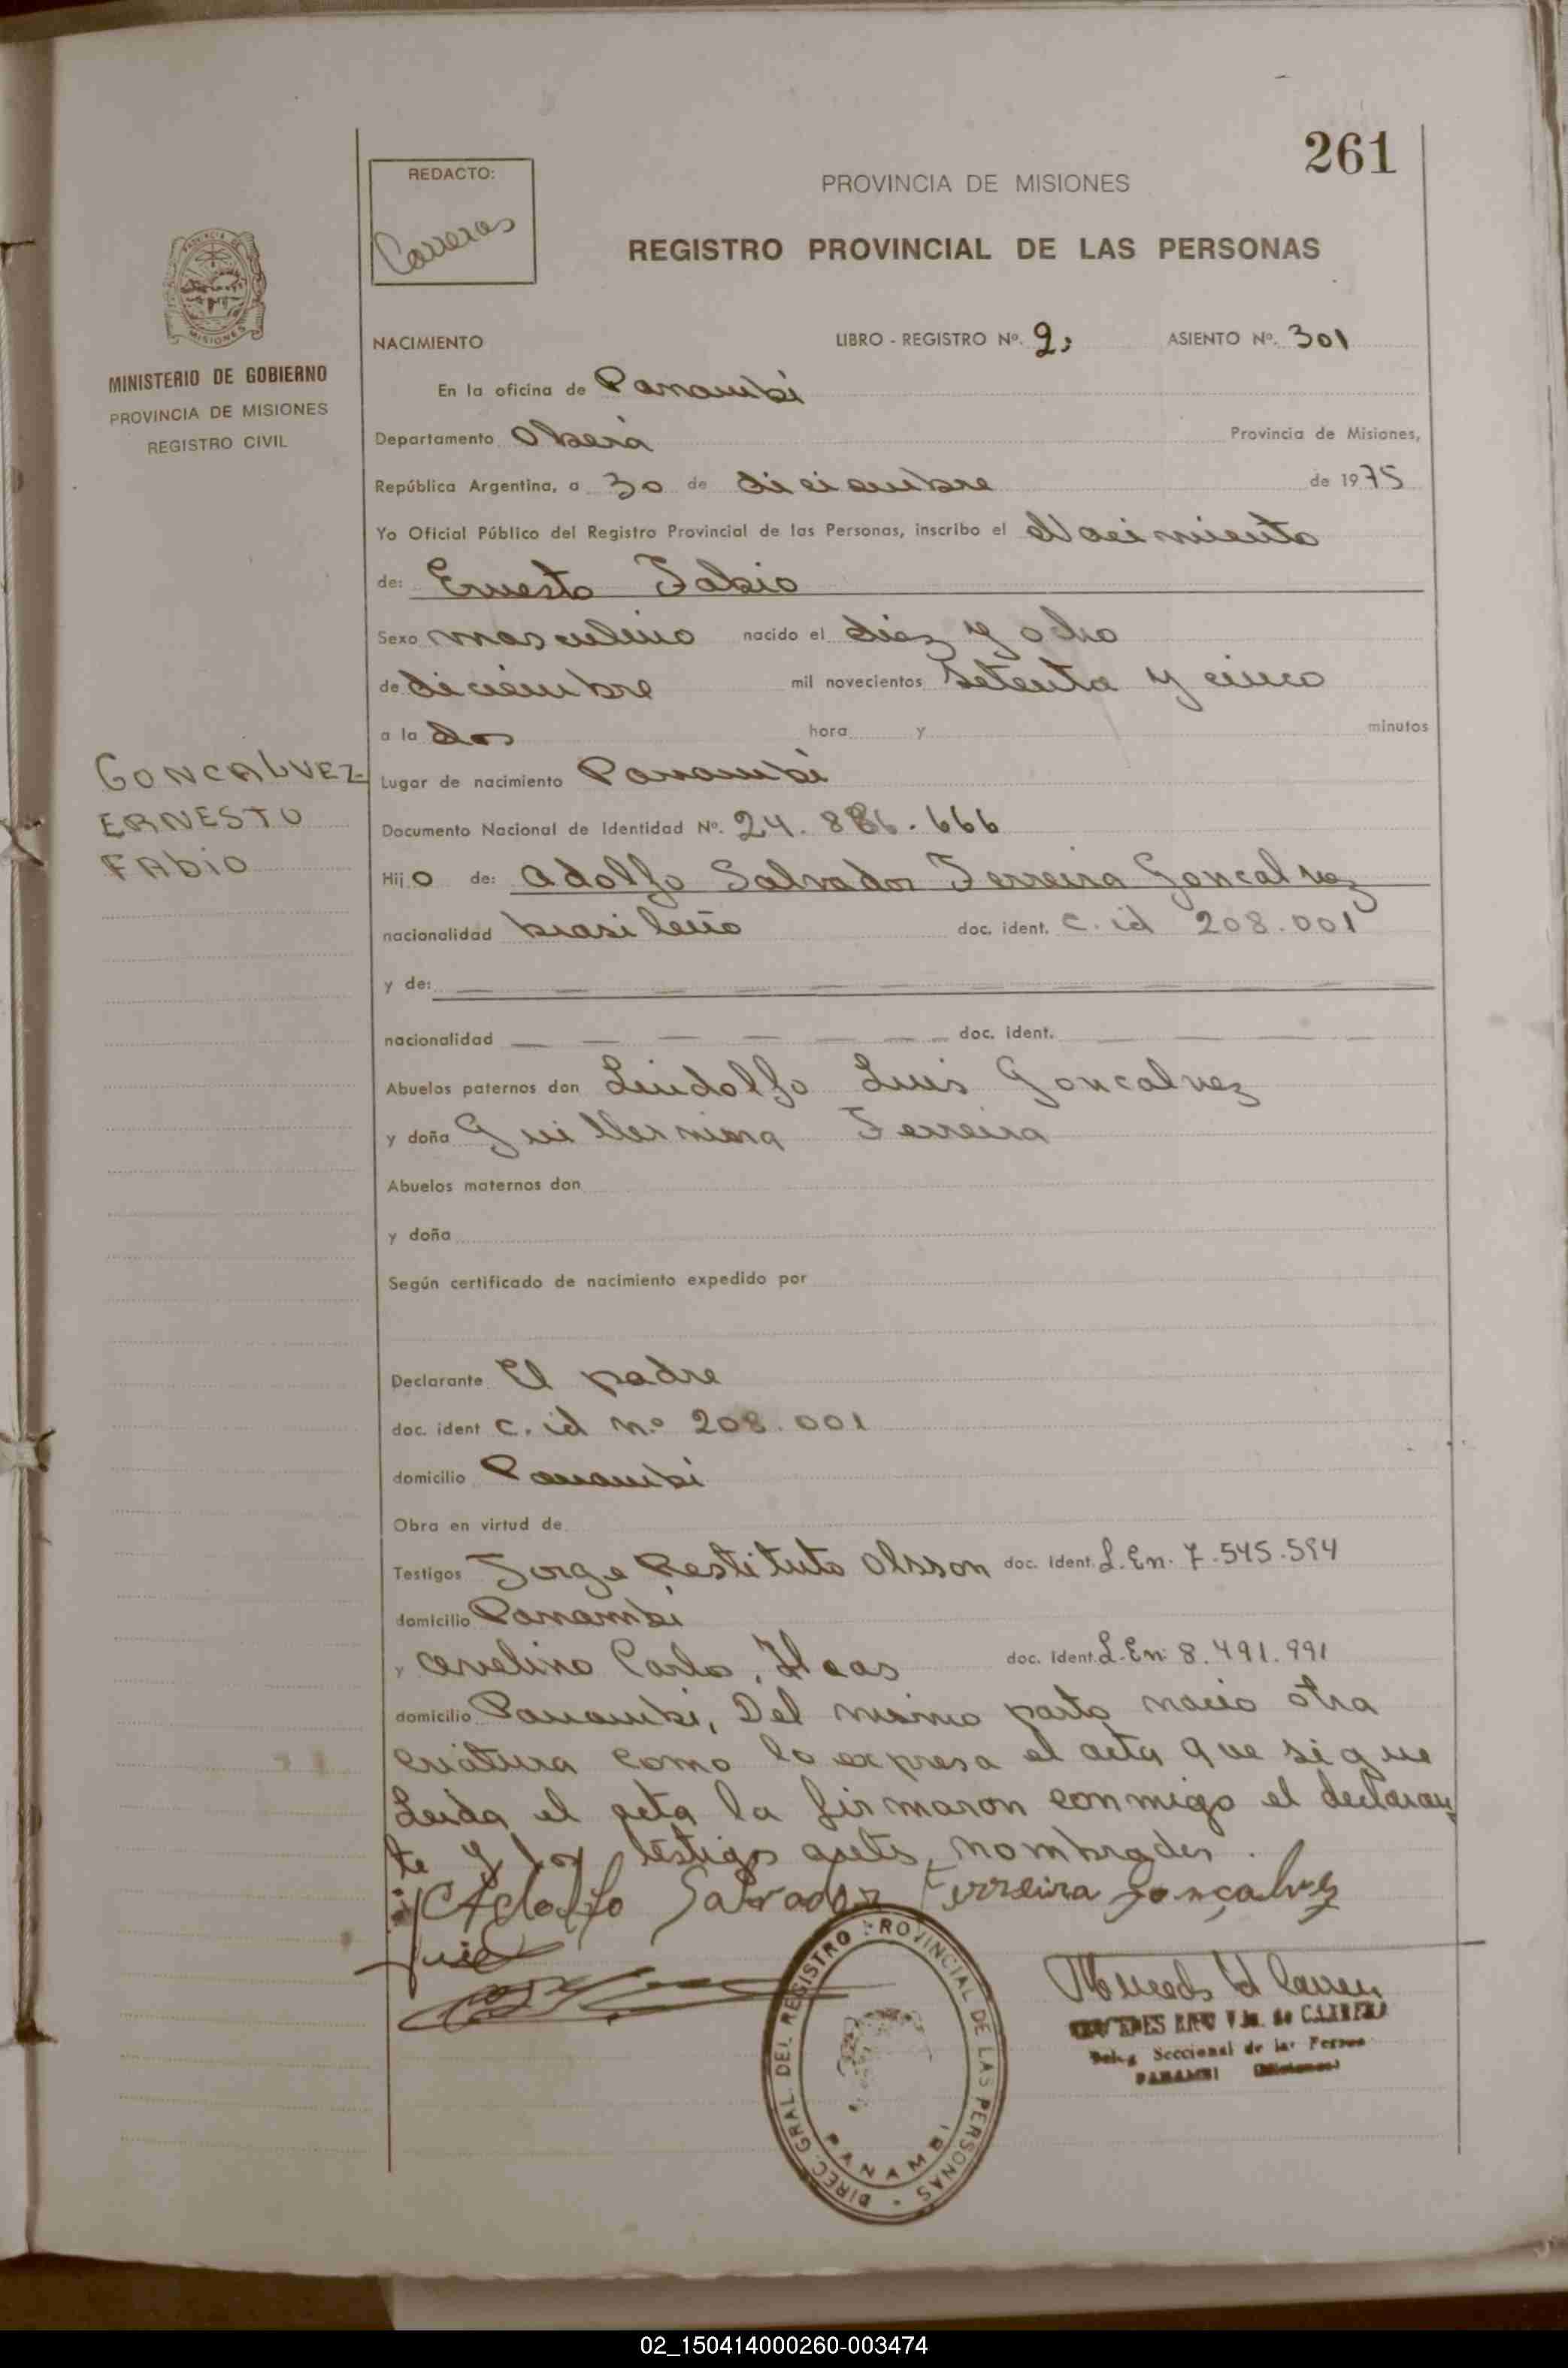 261
REDACTO:
Carreras
PROVINCIA DE MISIONES
REGISTRO PROVINCIAL DE LAS PERSONAS
MISIONES
MINISTERIO DE GOBIERNO
PROVINCIA DE MISIONES
REGISTRO CIVIL
NACIMIENTO LIBRO - REGISTRO Nº. 2, ASIENTO Nº. 301
En la oficina de Panambí
Departamento Oberá Provincia de Misiones,
República Argentina, a 30 de diciembre de 1975
Yo Oficial Público del Registro Provincial de las Personas, inscribo el Nacimiento
de: Ernesto Fabio
Sexo masculino nacido el diez y ocho
de diciembre mil novecientos setenta y cinco
a la dos hora y minutos
GONCALVEZ
ERNESTO
FABIO
Lugar de nacimiento Panambí
Documento Nacional de Identidad Nº. 24.886.666
Hijo de: Adolfo Salvador Ferreira Goncalvez
nacionalidad brasileño doc. ident. C. id 208.001
y de:
nacionalidad doc. ident.
Abuelos paternos don Lindolfo Luis Goncalvez
y doña Guillermina Ferreira
Abuelos maternos don
y doña
Según certificado de nacimiento expedido por
Declarante El padre
doc. ident C. id n.º 208.001
domicilio Panambí
Obra en virtud de
Testigos Jorge Restituto Olsson doc. Ident. L. En. 7.545.594
domicilio Panambí
y Avelino Carlo Haas doc. Ident. L. En: 8.491.991
domicilio Panambí, Del mismo parto nacio otra
criatura como lo expresa el acta que sigue
Leida el acta la firmaron conmigo el declaran
te y los testigos antes nombrados.
Adolfo Salvador Ferreira Gonçalvez
DIREC. GRAL. DEL REGISTRO PROVINCIAL DE LAS PERSONAS
PANAMBI
de CARRERA
Seccional de las Person
PANAMBI (Misiones)
02_150414000260-003474